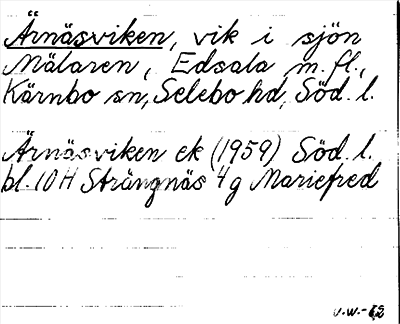 Ärnäsviken, vik i sjön
Mälaren, Edsala m.fl.,
Kärnbo sn, Selebo hd, Söd. l.
Ärnäsviken ek (1959) Söd. l.
bl. 10H Strängnäs 4g Mariefred
V.W.-62